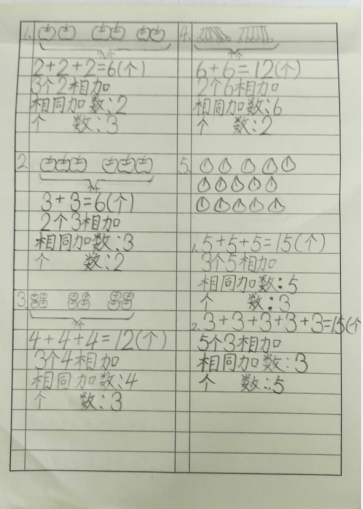 1.
2+2+2=6(个)
3个2相加
相同加数:2
个 数:3
2.
3+3=6(个)
2个3相加
相同加数:3
个 数:2
3.
4+4+4=12(个)
3个4相加
相同加数:4
个 数:3
4.
6+6=12(个)
2个6相加
相同加数:6
个 数:2
5.
1.5+5+5=15(个)
3个5相加
相同加数:5
个 数:3
2.3+3+3+3+3=15(个
5个3相加
相同加数:3
个 数:5